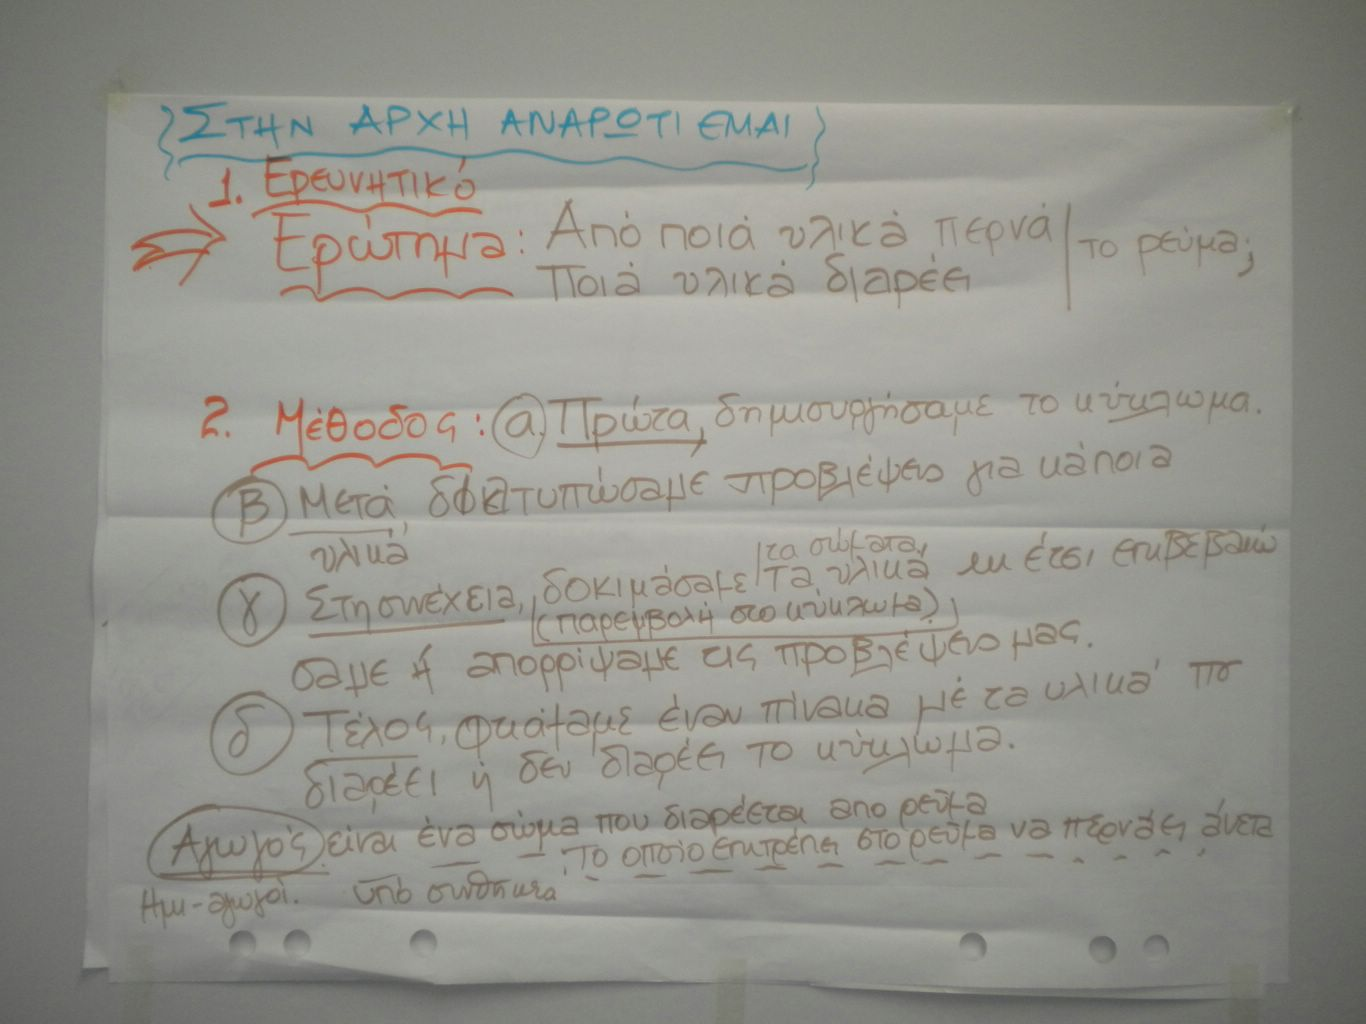 ΣΤΗΝ ΑΡΧΗ ΑΝΑΡΩΤΙΕΜΑΙ
1. Ερευνητικό
Ερώτημα: Από ποιά υλικά περνά | το ρεύμα;
Ποιά υλικά διαρέει
2. Μέθοδος: α. Πρώτα, δημιουργήσαμε το κύκλωμα.
β Μετά, διατυπώσαμε προβλέψεις για κάποια
υλικά
τα σώματα,
γ Στη συνέχεια, δοκιμάσαμε τα υλικά και έτσι επιβεβαιώ
(παρεμβολή στο κύκλωμα)
σαμε ή απορρίψαμε τις προβλέψεις μας.
δ Τέλος, φτιάξαμε έναν πίνακα μέ τα υλικά πο
διαρέει ή δεν διαρέει το κύκλωμα.
Αγωγός είναι ένα σώμα που διαρέεται απο ρεύμα
το οποίο επιτρέπει στο ρεύμα να περνάει άνετα
Ημι-αγωγοί. υπό συνθήκες